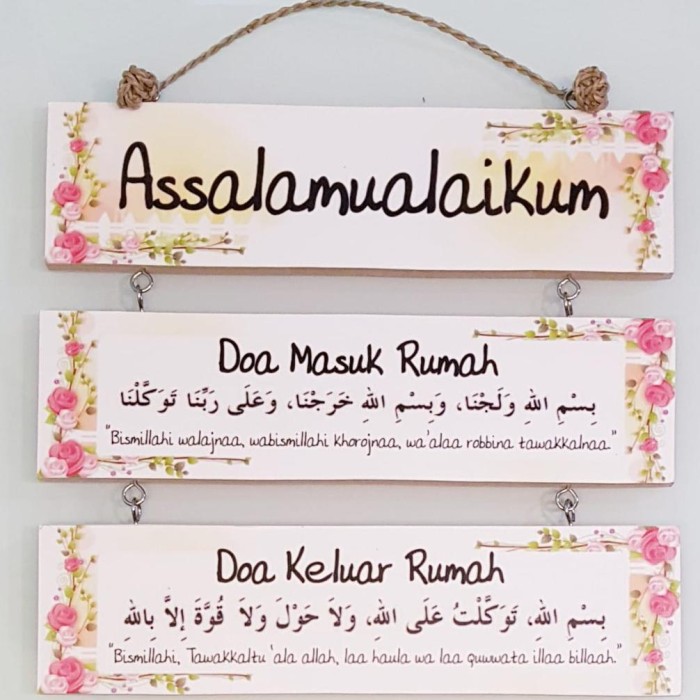 Assalamualaikum
Doa Masuk Rumah
بِسْمِ اللهِ وَلَجْنَا، وَبِسْمِ اللهِ خَرَجْنَا، وَعَلَى رَبِّنَا تَوَكَّلْنَا
"Bismillahi walajnaa, wabismillahi khorojnaa, wa'alaa robbina tawakkalnaa."
Doa Keluar Rumah
بِسْمِ اللهِ، تَوَكَّلْتُ عَلَى اللهِ، وَلاَ حَوْلَ وَلاَ قُوَّةَ إِلاَّ بِاللهِ
"Bismillahi, Tawakkaltu 'ala allah, laa haula wa laa quwwata illaa billaah."